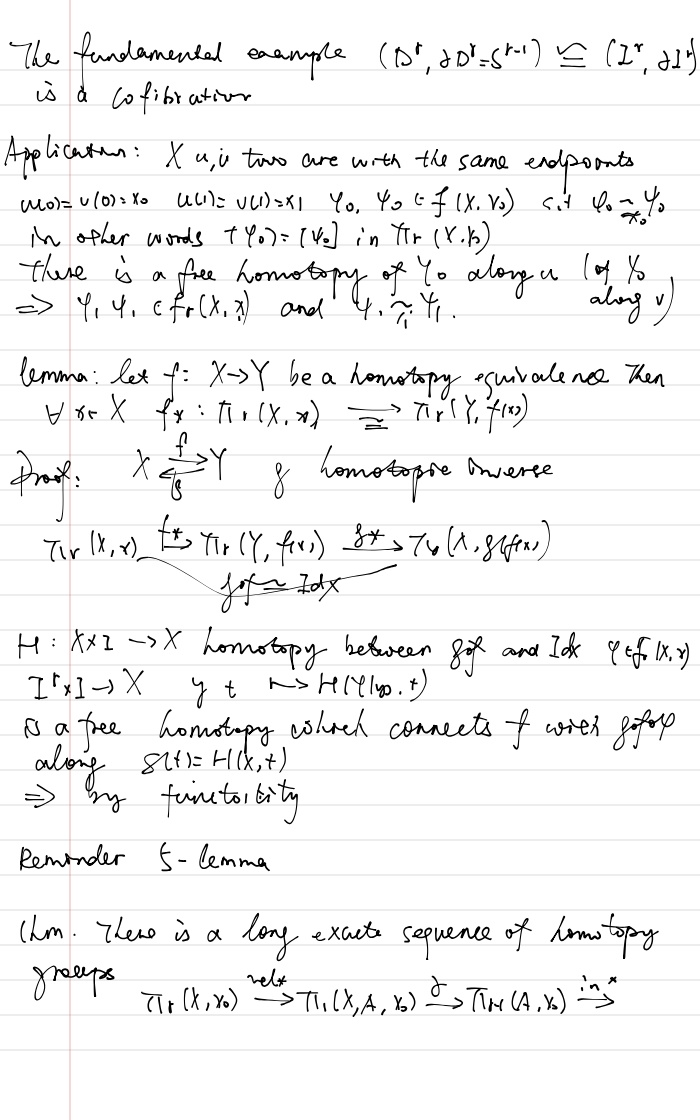 The fundamental example (Dʳ, ∂Dʳ=Sʳ⁻¹) ≅ (Iʳ, ∂Iʳ)
is a cofibration
Application: X u,v two are with the same endpoints
u(0)=v(0)=x₀ u(1)=v(1)=x₁ φ₀, ψ₀ ∈ f(X,x₀) s.t φ₀ ~ₓ₀ ψ₀
in other words [φ₀]=[ψ₀] in πr(X,x₀)
there is a free homotopy of φ₀ along u (of ψ₀ along v)
=> φ₁ ψ₁ ∈ fr(X,x₁) and φ₁ ~₁ ψ₁.
lemma: let f: X→Y be a homotopy equivalence Then
∀ x∈ X f* : πr(X,x) →≅ πr(Y,f(x))
Proof: X ⇄ Y f g g homotopic inverse
πr(X,x) →f* πr(Y,f(x)) →g* πr(X,g(f(x))
g∘f ≃ Idx
H : X×I → X homotopy between g∘f and Idx φ∈fr(X,x)
Iʳ×I → X y t ↦ H(φ(y), t)
is a free homotopy which connects f with g∘f∘φ
along γ(t)= H(x,t)
=> by functoility
Reminder 5-lemma
Thm. There is a long exacte sequence of homotopy
groups πr(X,x₀) →rel* πr(X,A,x₀) →∂ πr-1(A,x₀) →in*